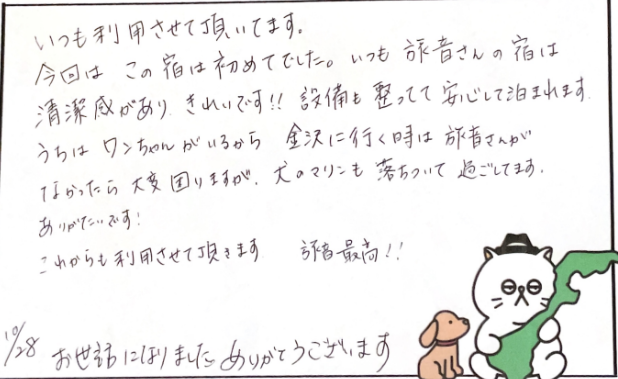 いつも利用させて頂いてます。
今回は この宿は初めてでした。いつも 旅音さんの宿は
清潔感があり きれいです!! 設備も 整ってて 安心して泊まれます
うちは ワンちゃんがいるから 金沢に行く時は 旅音さんが
なかったら 大変 困りますが、犬のマリンも 落ちついて 過ごしてます.
ありがたいです!
これからも利用させて頂きます 旅音最高!!
10/28 お世話になりました ありがとうございます